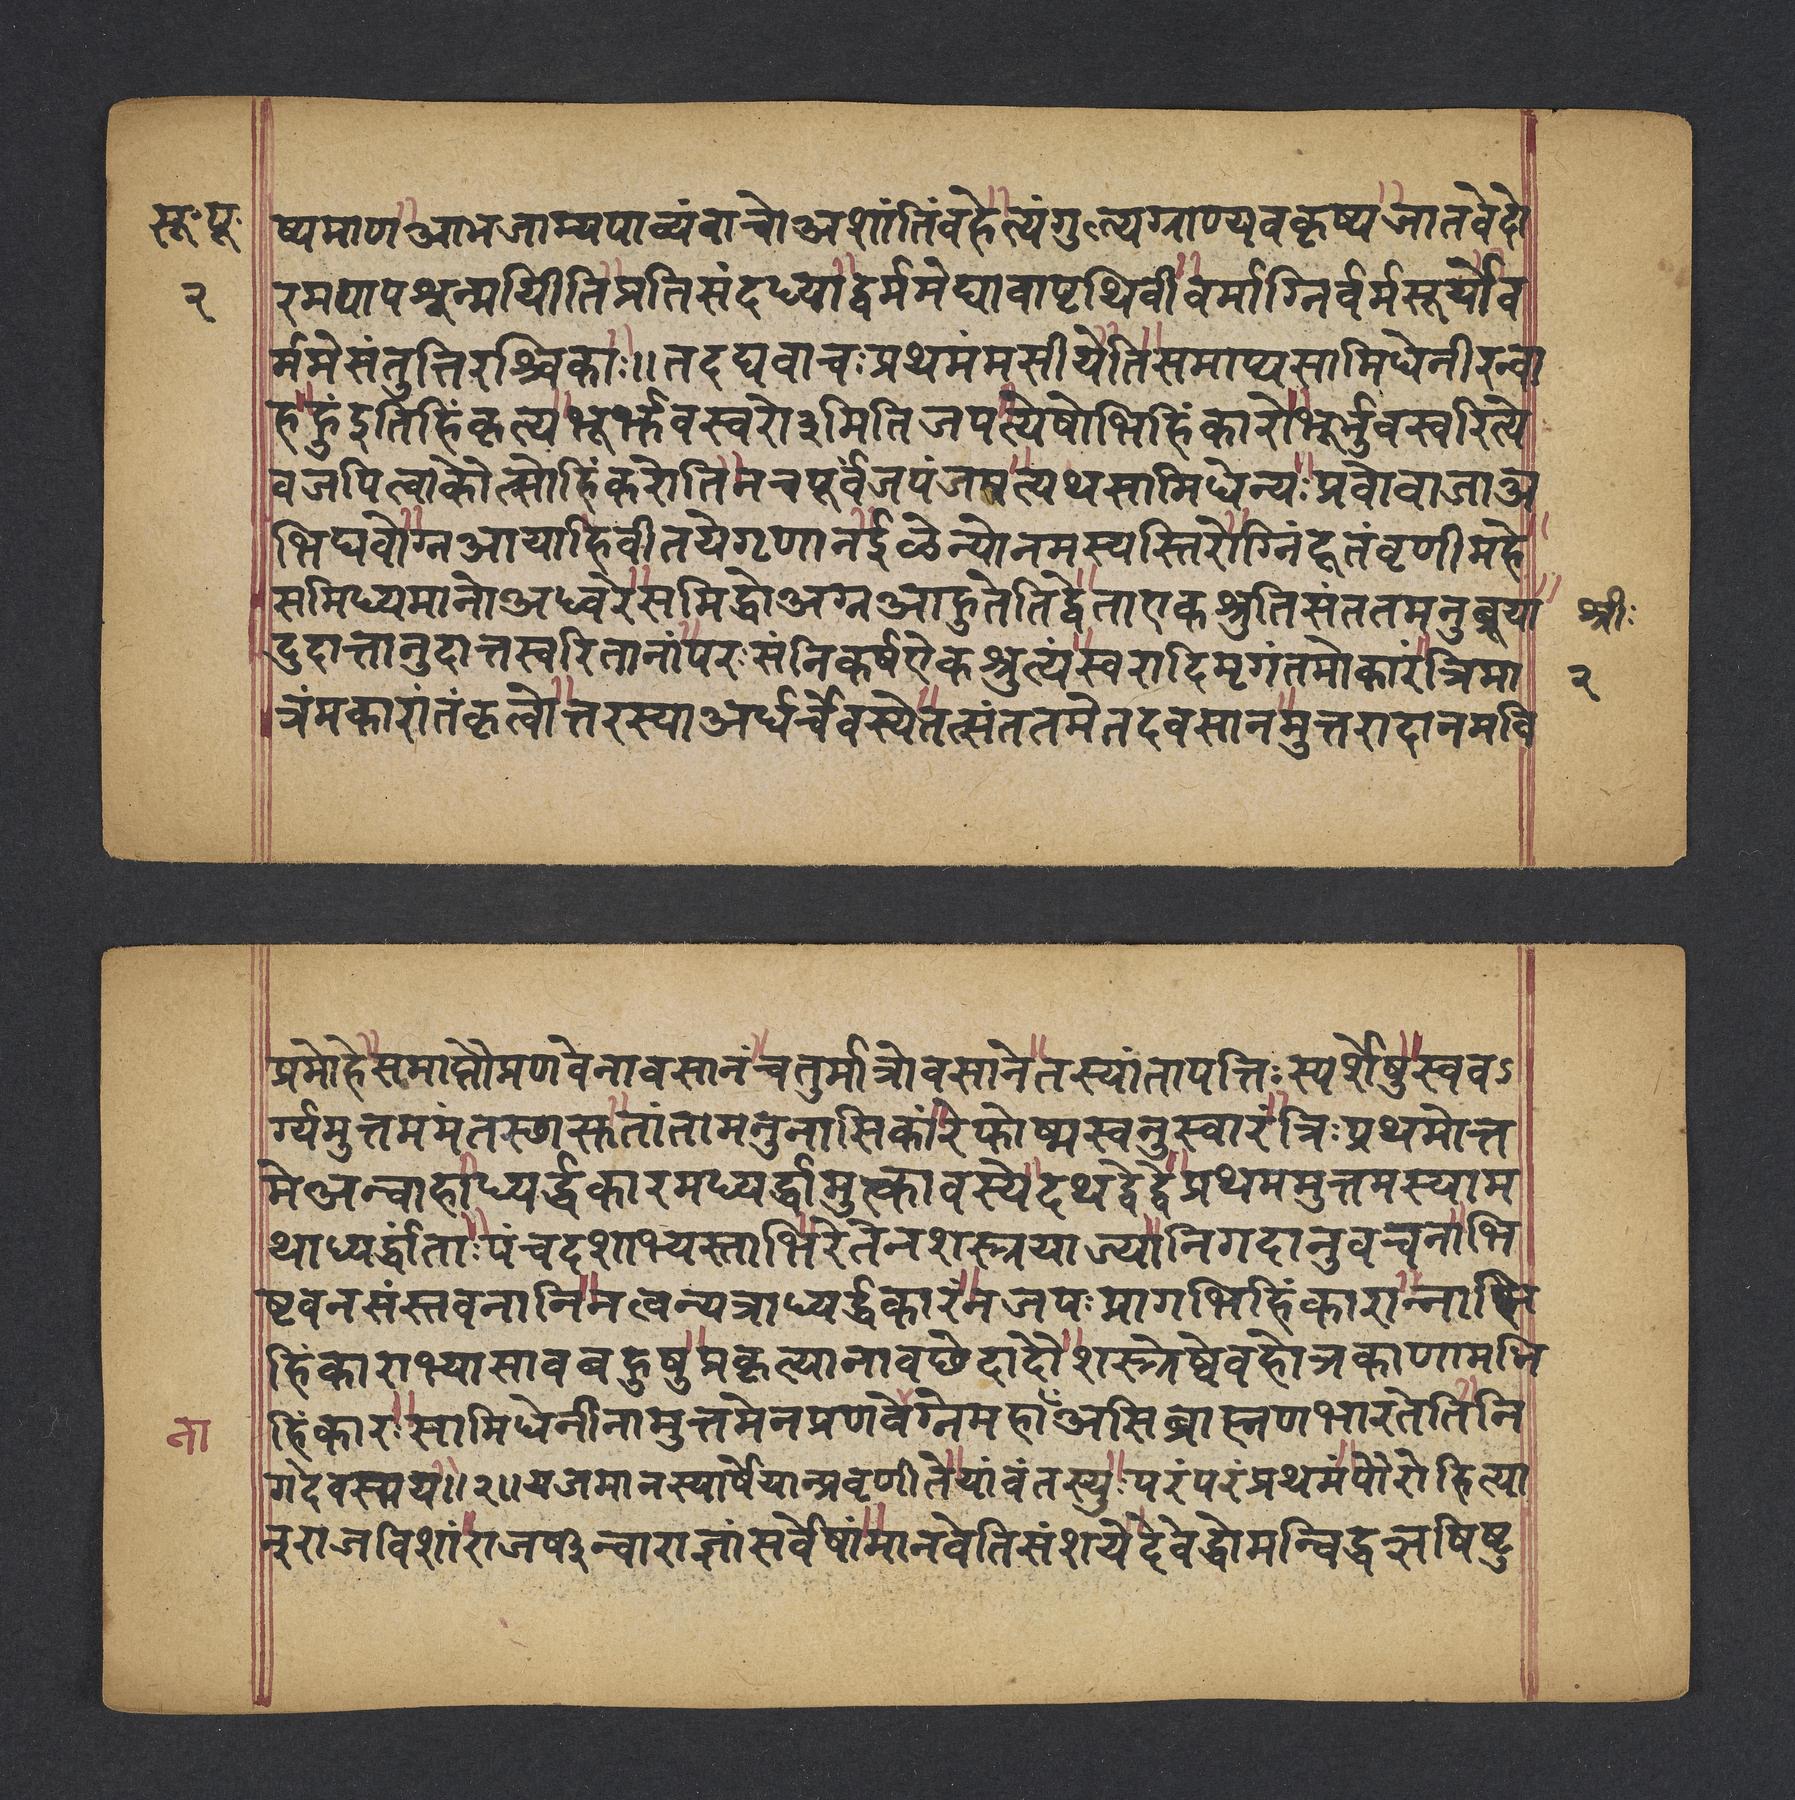 सूः पूः
२
ष्यमाण आभजाम्यपाव्यं वाचो अशांतिं वहेत्यंगुल्यग्राण्यवकृष्य जातवेदो
रमया पशून्मयीति प्रतिसंदध्याद्वर्म मे द्यावापृथिवी वर्माग्निर्वर्म सूर्यो व
र्म मे संतु त्तिरश्चिकाः ॥ तदद्य वाचः प्रथमं मसीयेति समाप्य सामिधेनीरन्वा
ह हुं इति हिंकृत्य भूर्भुवस्वरो३मिति जपत्येषोभिहिंकारो भूर्भुवस्वरित्ये
व जपित्वा कौत्सो हिंकरोति न च पूर्वं जपं जपत्यथ सामिधेन्यः प्र वो वाजा अ
भिद्यवोग्न आयाहि वीतये गृणान ईळेन्यो नमस्यस्तिरोग्निं दूतं वृणीमहे
समिध्यमानो अध्वरे समिद्धो अग्न आहुतेति द्वे ता एकश्रुति संततमनुब्रूया
दुदात्तानुदात्तस्वरितानां परः संनिकर्ष ऐकश्रुत्यं स्वरादिमृगंतमोकारं त्रिमा
त्रं मकारांतं कृत्वोत्तरस्या अर्धर्चेवस्येतत्संततमेतदवसानमुत्तरादानमवि
श्रीः
२
प्रमोहे समाप्तौ प्रणवेनावसानं चतुर्मात्रोवसाने तस्यांतापत्तिः स्पर्शेषु स्वव
र्ग्यमुत्तममंतस्छास्तु तांतामनुनासिकां रेफोष्मस्वनुस्वारं त्रिः प्रथमोत्त
मे अन्वाहाध्यर्द्धकारमध्यर्द्धामुत्कावस्येदथ द्वे द्वे प्रथममुत्तमस्याम
थाध्यर्द्धां ताः पंचदशाभ्यस्ताभिरेतेन शस्त्रयाज्यानिगदानुवचनाभि
ष्टवनसंस्तवनानि न त्वन्यत्राध्यर्द्धकारं न जपः प्रागभिहिंकारान्नाभि
हिंकाराभ्यासाव बहुषु प्रकृत्यानावछेदादौ शस्त्रेष्वेव होत्रकाणामभि
हिंकारः सामिधेनीनामुत्तमेन प्रणवेग्ने महाँ असि ब्राह्मण भारतेति नि
ना
गदेवस्यय ॥ २ ॥ यजमानस्यार्षेयान्प्रवृणीते यावंत स्युः परंपरं प्रथमं पौरोहित्या
न् राजविशां राजर्षीन्वा राज्ञां सर्वेषां मानवेति संशये देवेद्धो मन्विद्ध ऋषिष्टु